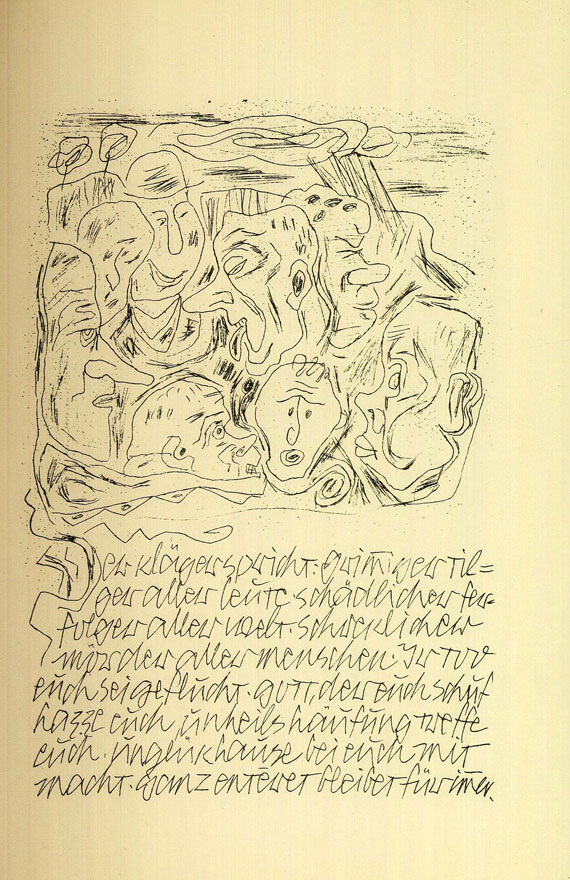 Der kläger spricht. Grim̄iger til=
ger aller leute, schädlicher fer=
folger aller welt. schreklicher
mörder aller menschen. Ir tod
euch sei geflucht. gott, der euch schuf
hazze euch, unheils häufung treffe
euch. unglük hause bei euch mit
macht. Ganz enteret bleibet für im̄er.